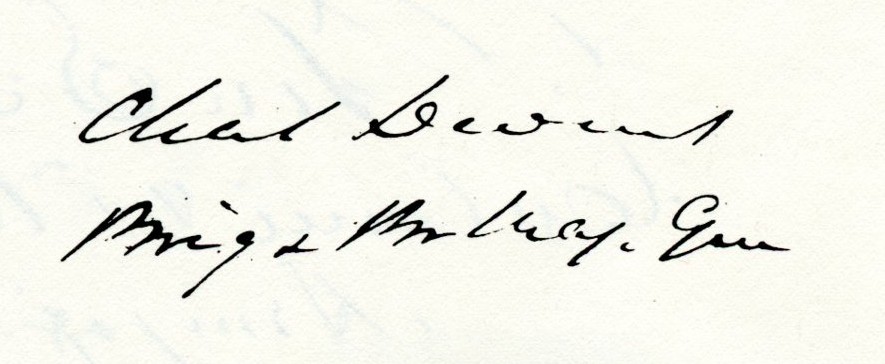 Chas Devens
Brig & Bv Maj. Gen